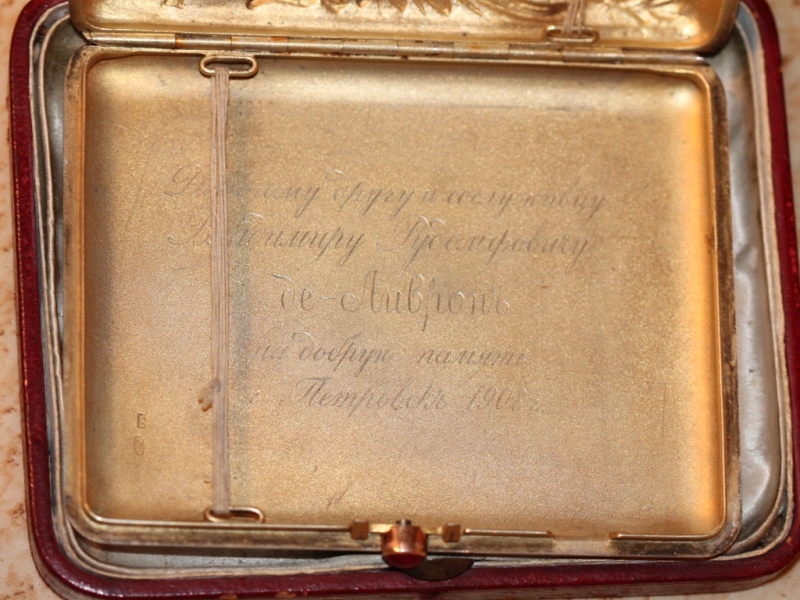 другу и сослуживцу
Владимиру Рудольфовичу
де-Ливронъ
на добрую память
Петровскъ